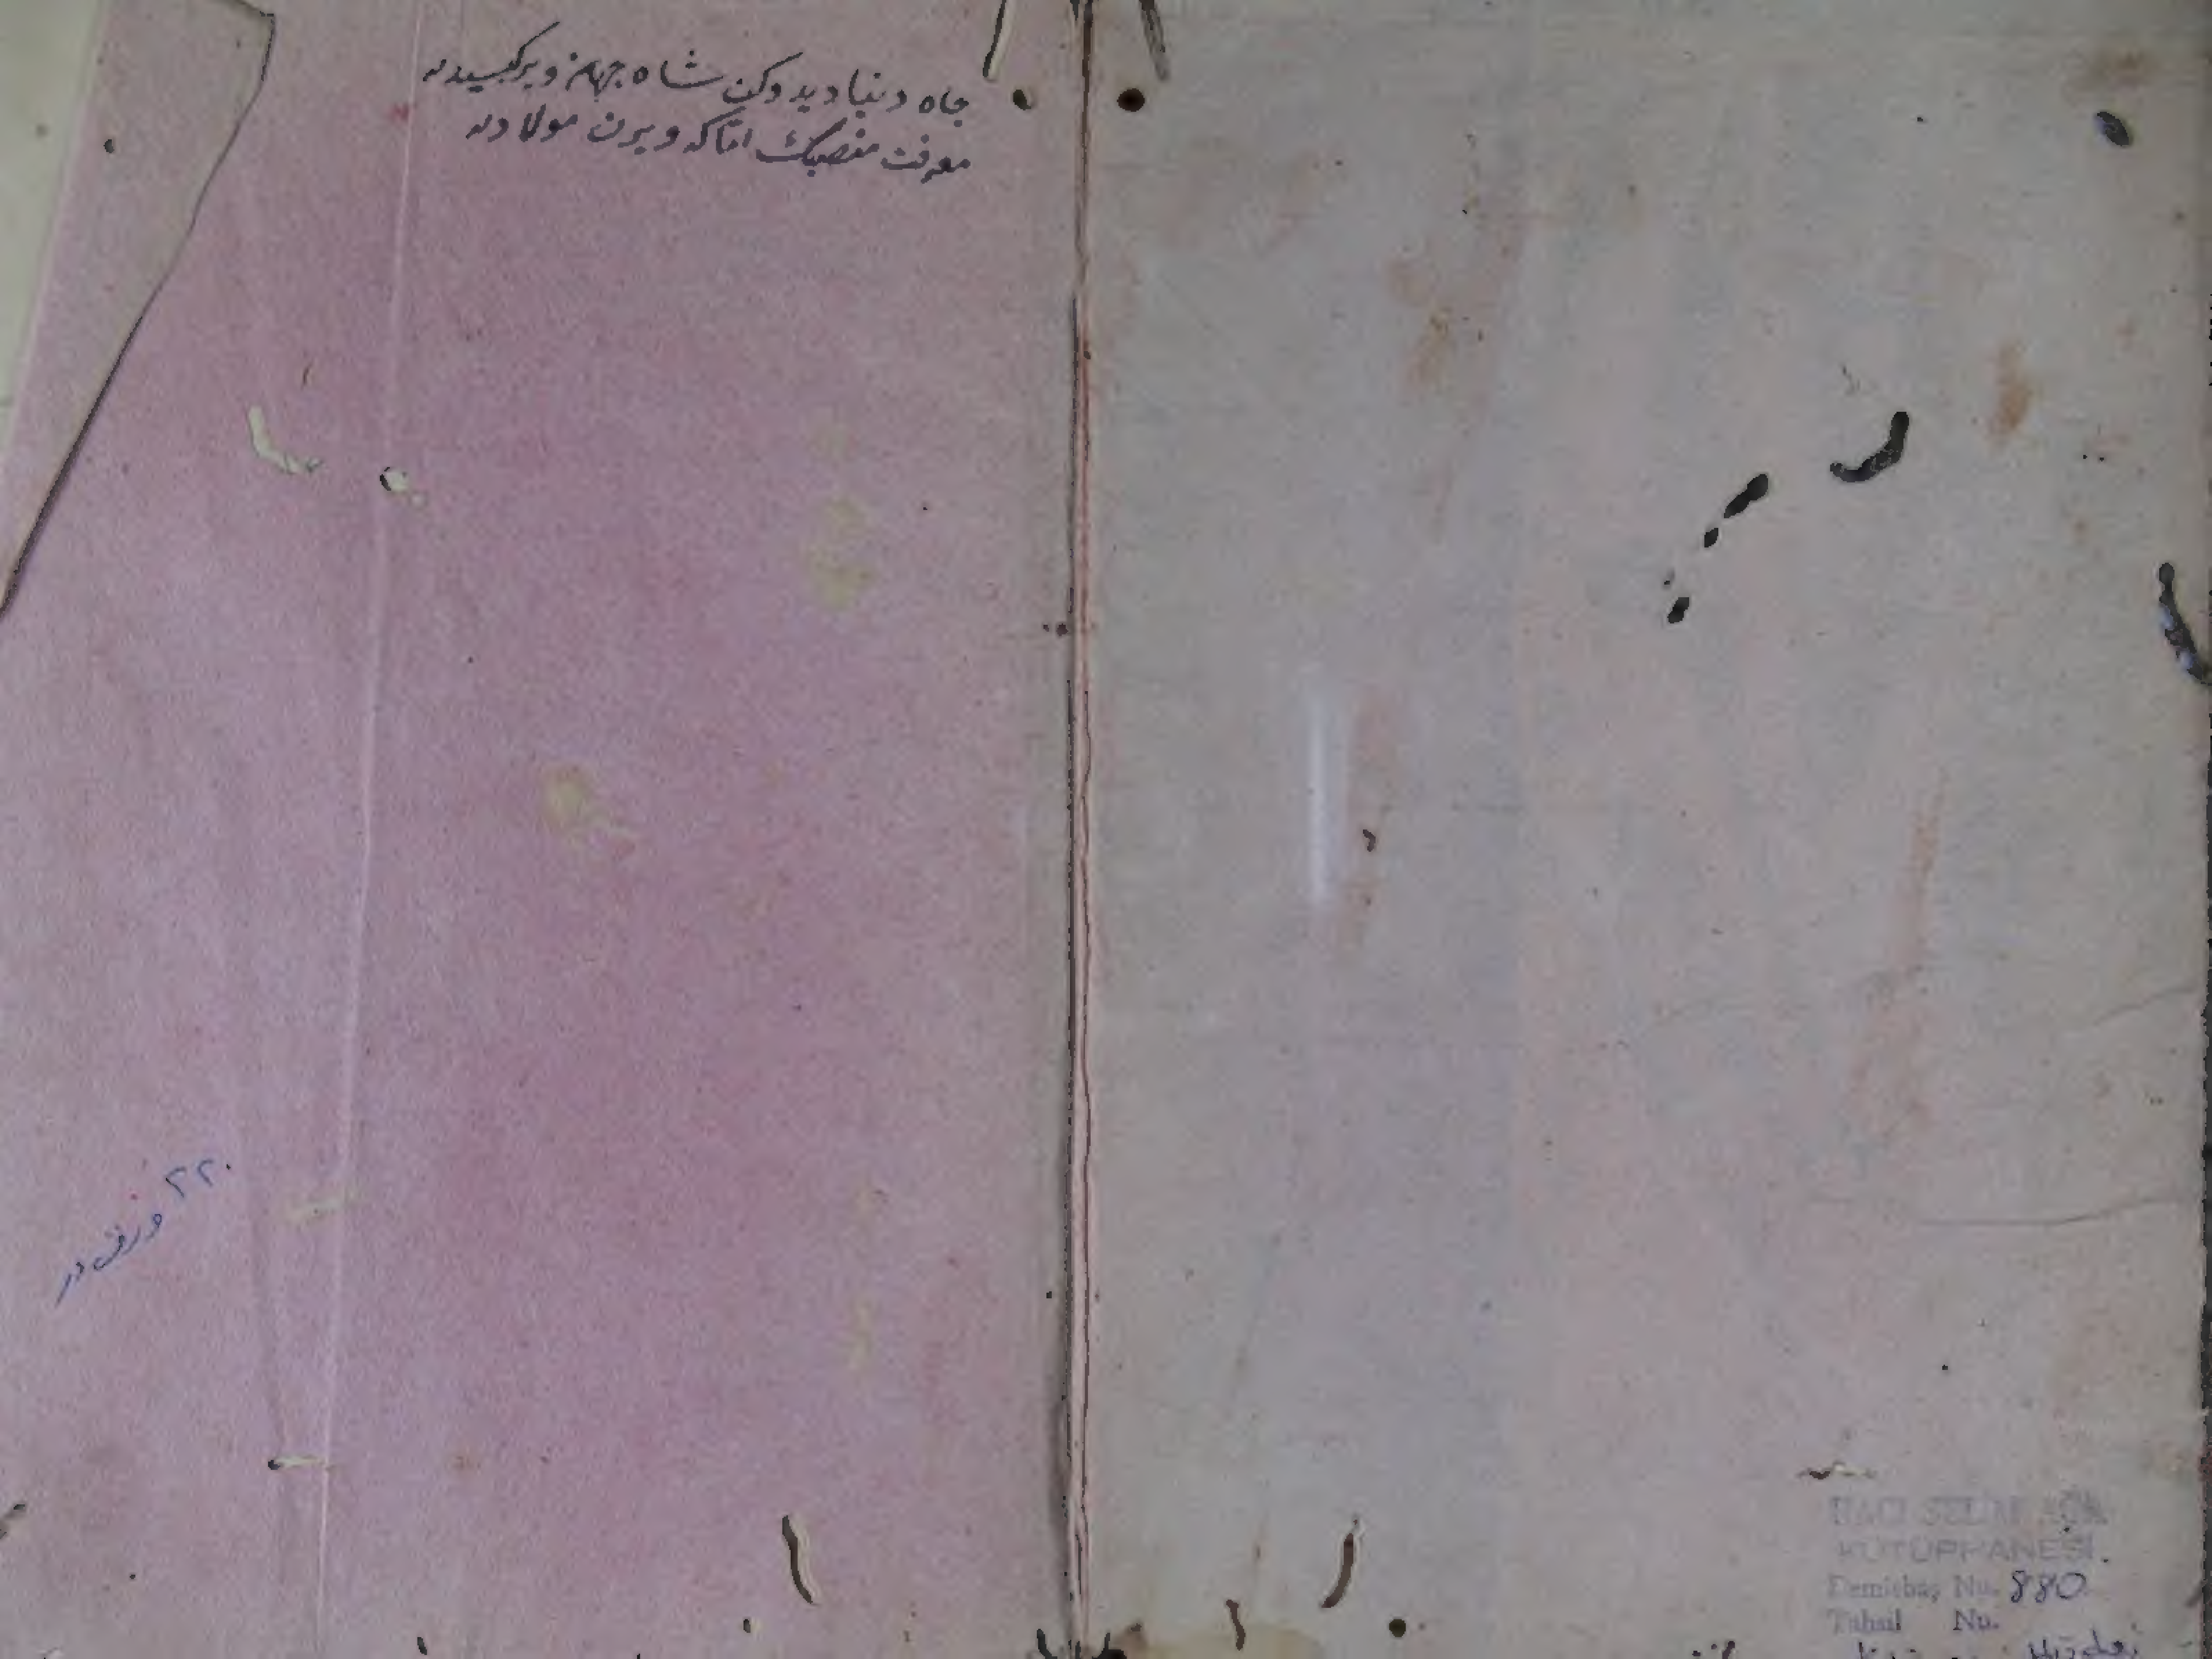 جاه دنيا ديدوكن شاه جهان ويركيسيدر
معرفت منصبك اما كه ويرن مولادر
۲۲۰ ورقدر
HACI SELİM AĞA
KÜTÜPHANESİ
Demirbaş No. 880
Tahsil No.
Hüdai